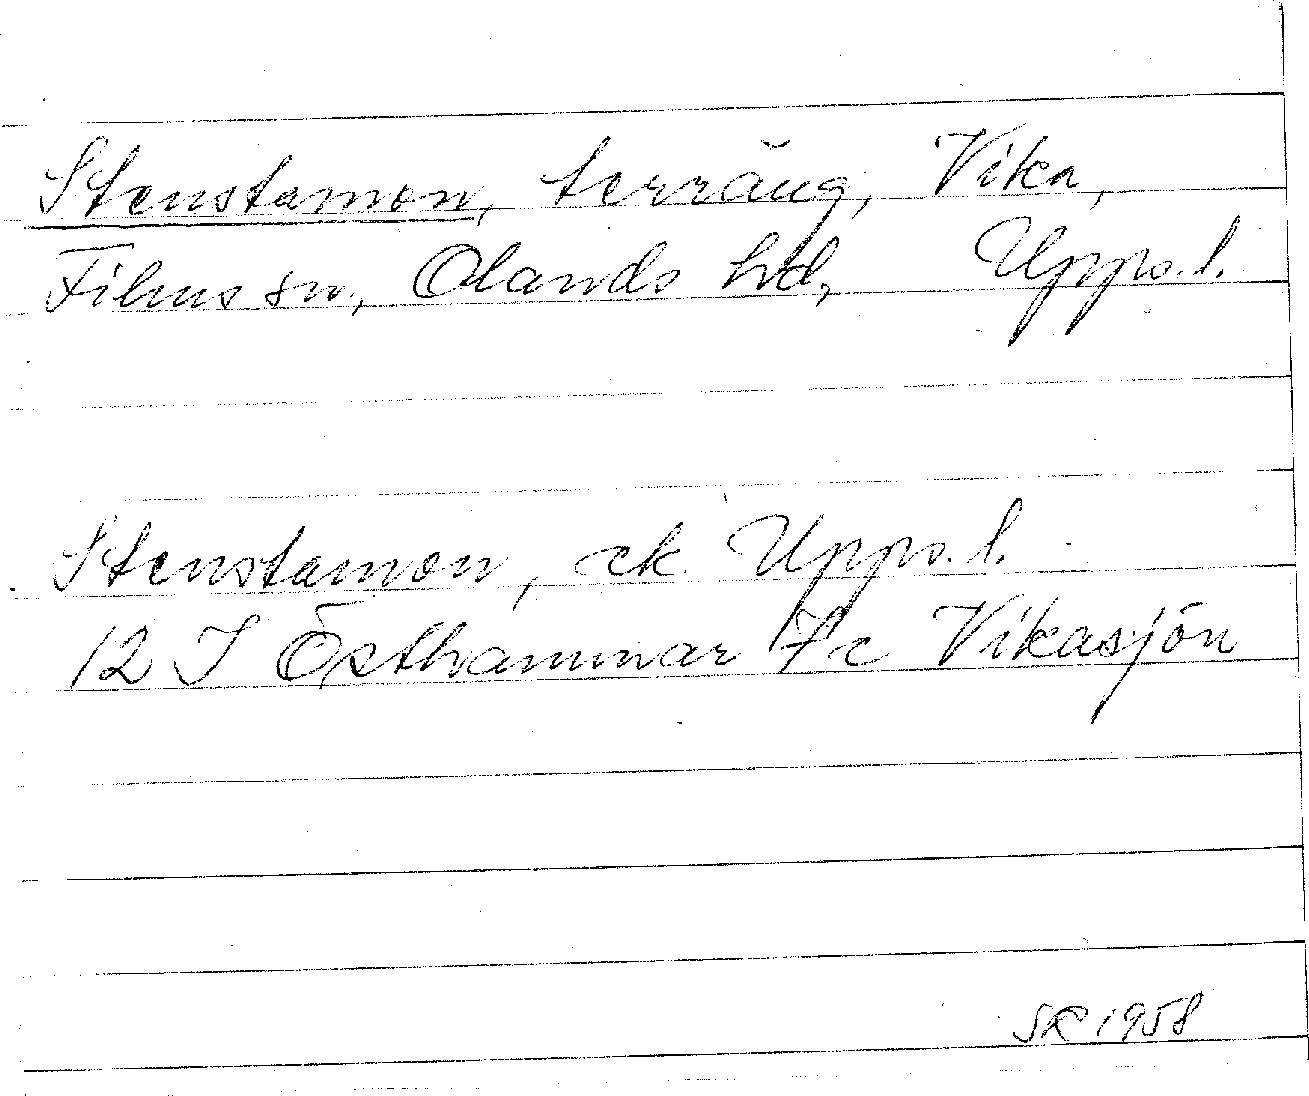 Stenstamon, terräng, Vika,
Films sn, Olands hd, Upps. l.
Stenstamon, ek. Upps. l.
12 I Östhammar 7c Vikasjön
SR 1958